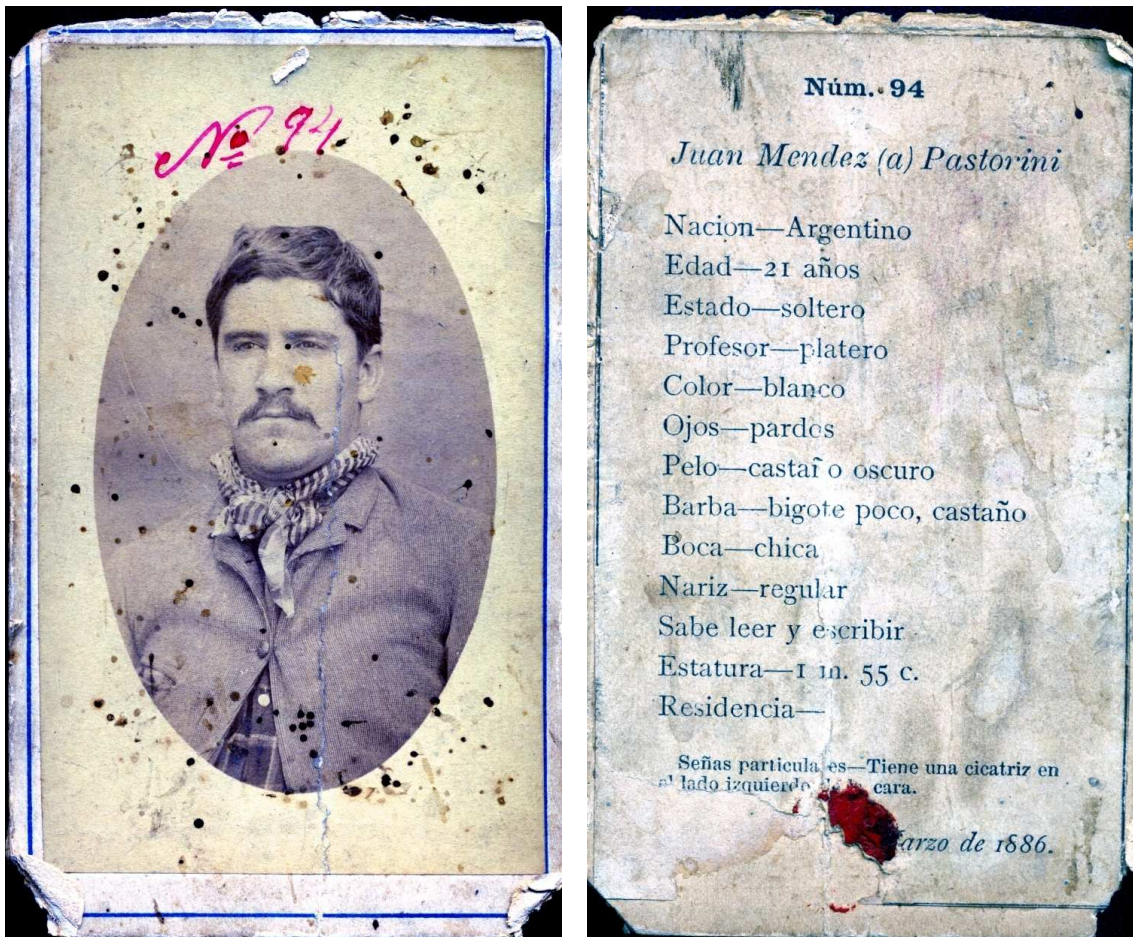 Nº 94
Núm. 94
Juan Mendez (a) Pastorini
Nacion—Argentino
Edad—21 años
Estado—soltero
Profesor—platero
Color—blanco
Ojos—pardos
Pelo—castaño oscuro
Barba—bigote poco, castaño
Boca—chica
Nariz—regular
Sabe leer y escribir
Estatura—1 m. 55 c.
Residencia—
Señas particulares—Tiene una cicatriz en
al lado izquierdo cara.
arzo de 1886.